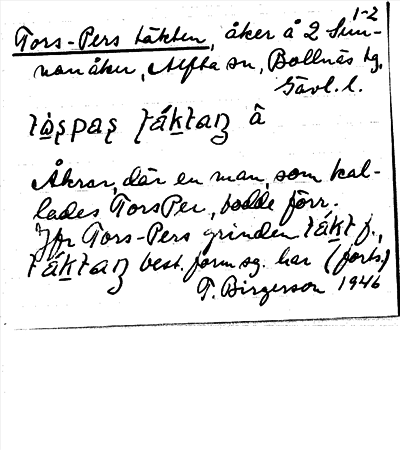 1-2
Tors-Pers täkten, åker å 2 Sun-
nanåker, Alfta sn, Bollnäs tg,
Gävl. l.
å
Åkrar, där en man, som kal-
lades Tors Per, bodde förr.
Jfr Tors-Pers grinden täkt f.,
best. form sg. har (forts.)
T. Birgerson 1946